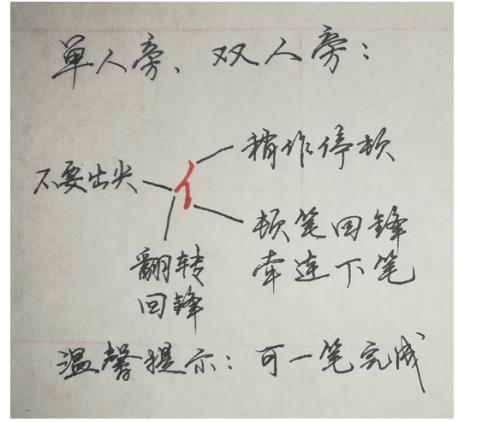 单人旁、双人旁：
稍作停顿
不要出尖
亻
顿笔回锋
牵连下笔
翻转
回锋
温馨提示：可一笔完成